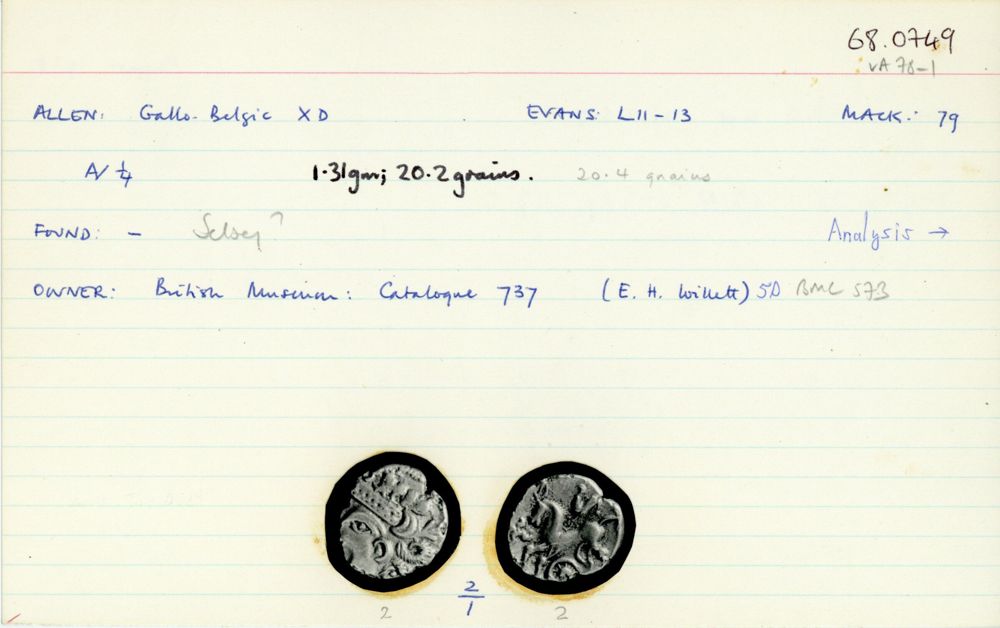 68.0749
VA 78-1
ALLEN: Gallo-Belgic XD EVANS: L11-13 MACK: 79
A/ 1/4 1.31gm; 20.2 grains. 20.4 grains
FOUND: - Selsey? Analysis →
OWNER: British Museum: Catalogue 737 (E. H. Willett) SD BMC 573
2 2/1 2